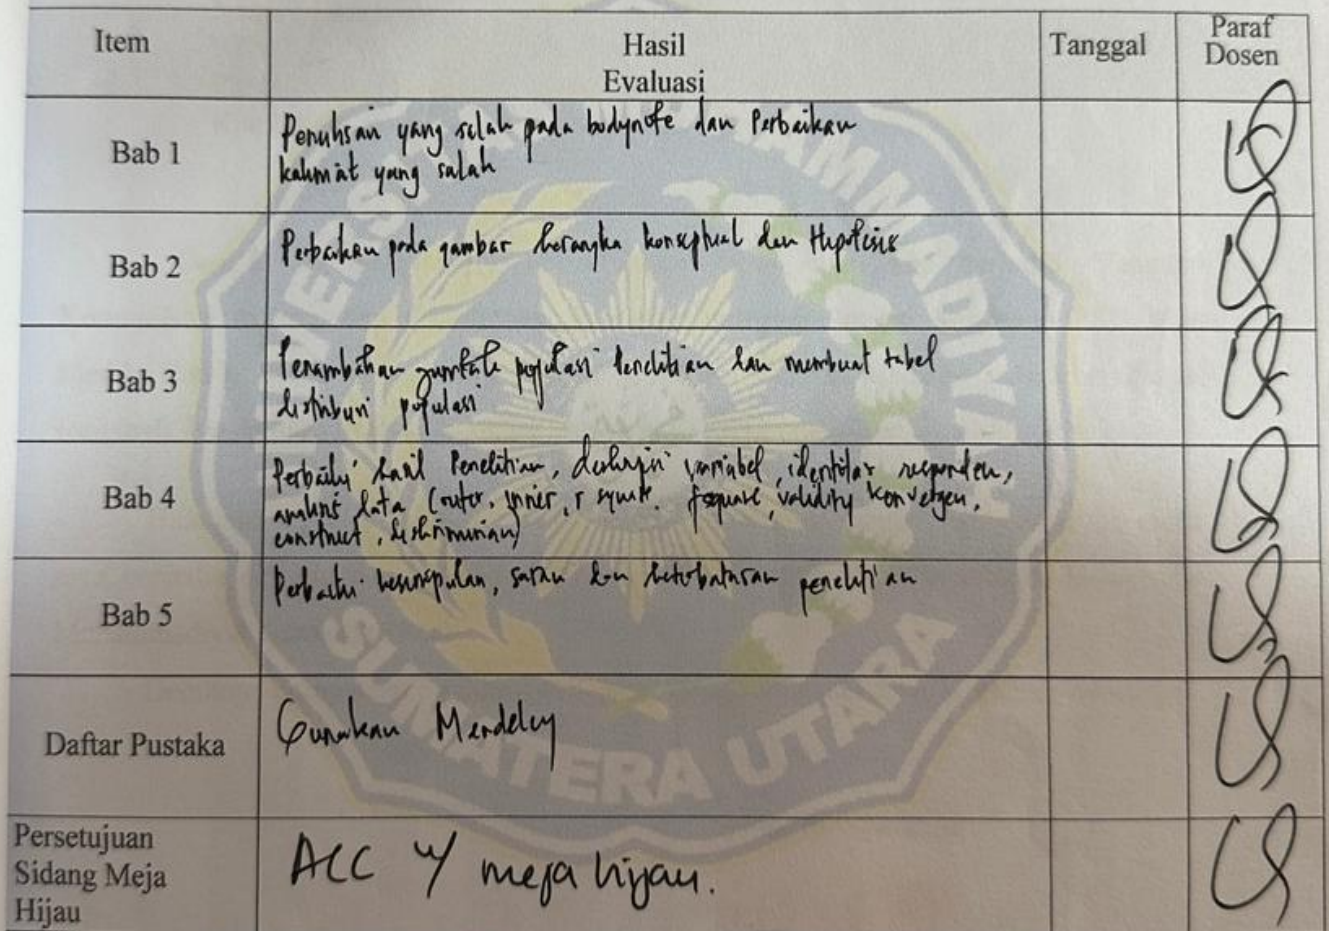 Item
Hasil
Evaluasi
Tanggal
Paraf
Dosen
Bab 1
Penulisan yang salah pada bodynote dan Perbaikan
kalimat yang salah
Bab 2
Perbaikan pada gambar kerangka konseptual dan Hipotesis
Bab 3
Penambahan jumlah populasi Penelitian dan membuat tabel
distribusi populasi
Bab 4
Perbaiki hasil Penelitian, deskripsi variabel, identitas responden,
analisis data (outer, inner, r square. fsquare, validity konvergen,
construct, diskriminan)
Bab 5
Perbaiki kesimpulan, saran dan keterbatasan penelitian
Daftar Pustaka
Gunakan Mendeley
Persetujuan
Sidang Meja
Hijau
ACC u/ meja hijau.
MUHAMMADIYAH
SUMATERA UTARA